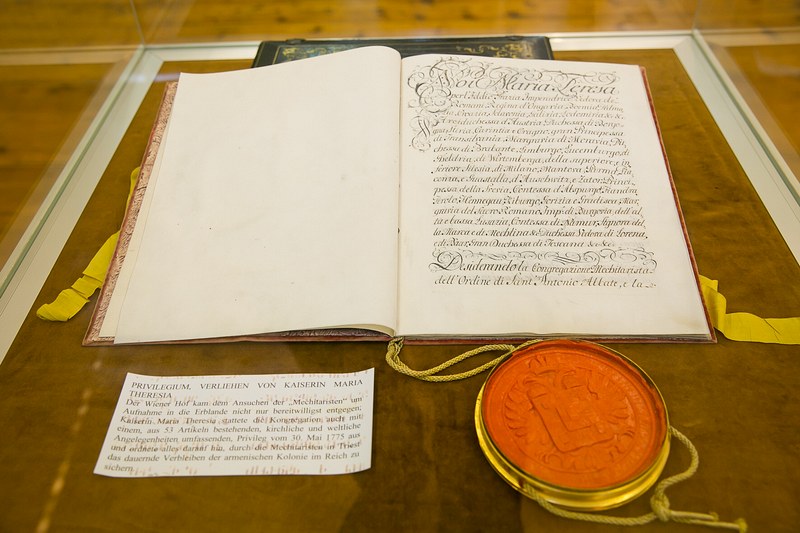 Noi Maria Teresa
per l'Iddio Grazia Imperadrice Vedova de
Romani, Regina d'Ungaria, Boemia, Dalma-
zia, Croazia, Schiavonia, Galizia, Lodomiria &c &c
Arciduchessa d'Austria, Duchessa di Borgo-
gna, Stiria, Carintia e Cragno, gran Principessa
di Transilvania, Margravia di Moravia, Du-
chessa di Brabante, Limburgo, Lucemburgo, di
Gheldria, di Wirtemberga, della superiore, e in-
feriore Slesia, di Milano, Mantova, Parma, Pia-
cenza, e Guastalla, d'Auschwitz, e Zator, Princi-
pessa della Svevia, Contessa d'Abspurgo, Fiandra,
Tirolo, Hannegau, Kiburgo, Gorizia, e Gradisca, Mar-
gravia del Sacro Romano Imp: di Burgovia, dell'al-
ta e bassa Lusazia, Contessa di Namur, Signora del-
la Marca e di Mechlina &c Duchessa Vedova di Lorena,
e di Bar, Gran Duchessa di Toscana &c &c
Desiderando la Congregazione Mechitarista
dell'Ordine di Sant' Antonio Abbate, e la
PRIVILEGIUM, VERLIEHEN VON KAISERIN MARIA
THERESIA
Der Wiener Hof kam dem Ansuchen der „Mechitaristen" um
Aufnahme in die Erblande nicht nur bereitwilligst entgegen;
Kaiserin Maria Theresia stattete die Kongregation auch mit
einem, aus 53 Artikeln bestehenden, kirchliche und weltliche
Angelegenheiten umfassenden, Privileg vom 30. Mai 1775 aus
und ordnete alles darauf hin, durch die Mechitaristen in Triest
das dauernde Verbleiben der armenischen Kolonie im Reich zu
sichern.